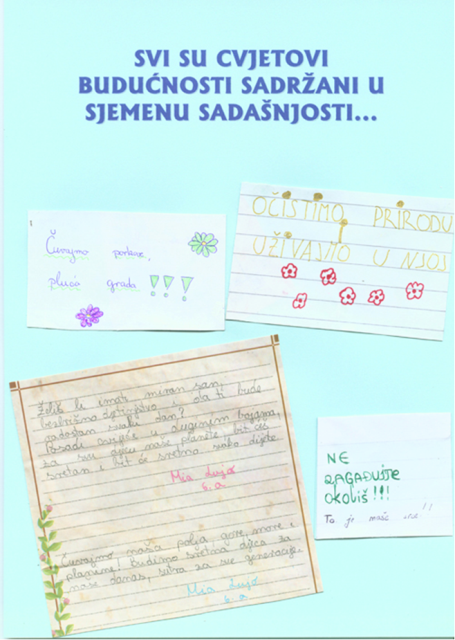 SVI SU CVJETOVI
BUDUĆNOSTI SADRŽANI U
SJEMENU SADAŠNJOSTI...
Čuvajmo parkove,
pluća grada !!!
OČISTIMO PRIRODU
I
UŽIVAJMO U NJOJ
Želiš li imati miran san,
bezbrižno djetinjstvo i da ti bude
radostan svaki dan?
Posadi cvijeće u duginim bojama
za svu djecu naše planete, bit ćeš
sretan i bit će sretno svako dijete.
Mia
6. a
Čuvajmo naša polja, gore, more i
planine! Budimo sretna djeca za
naše danas, sutra za sve generacije.
Mia
6. a
NE
ZAGAĐUJTE
OKOLIŠ!!!
To je naše !!